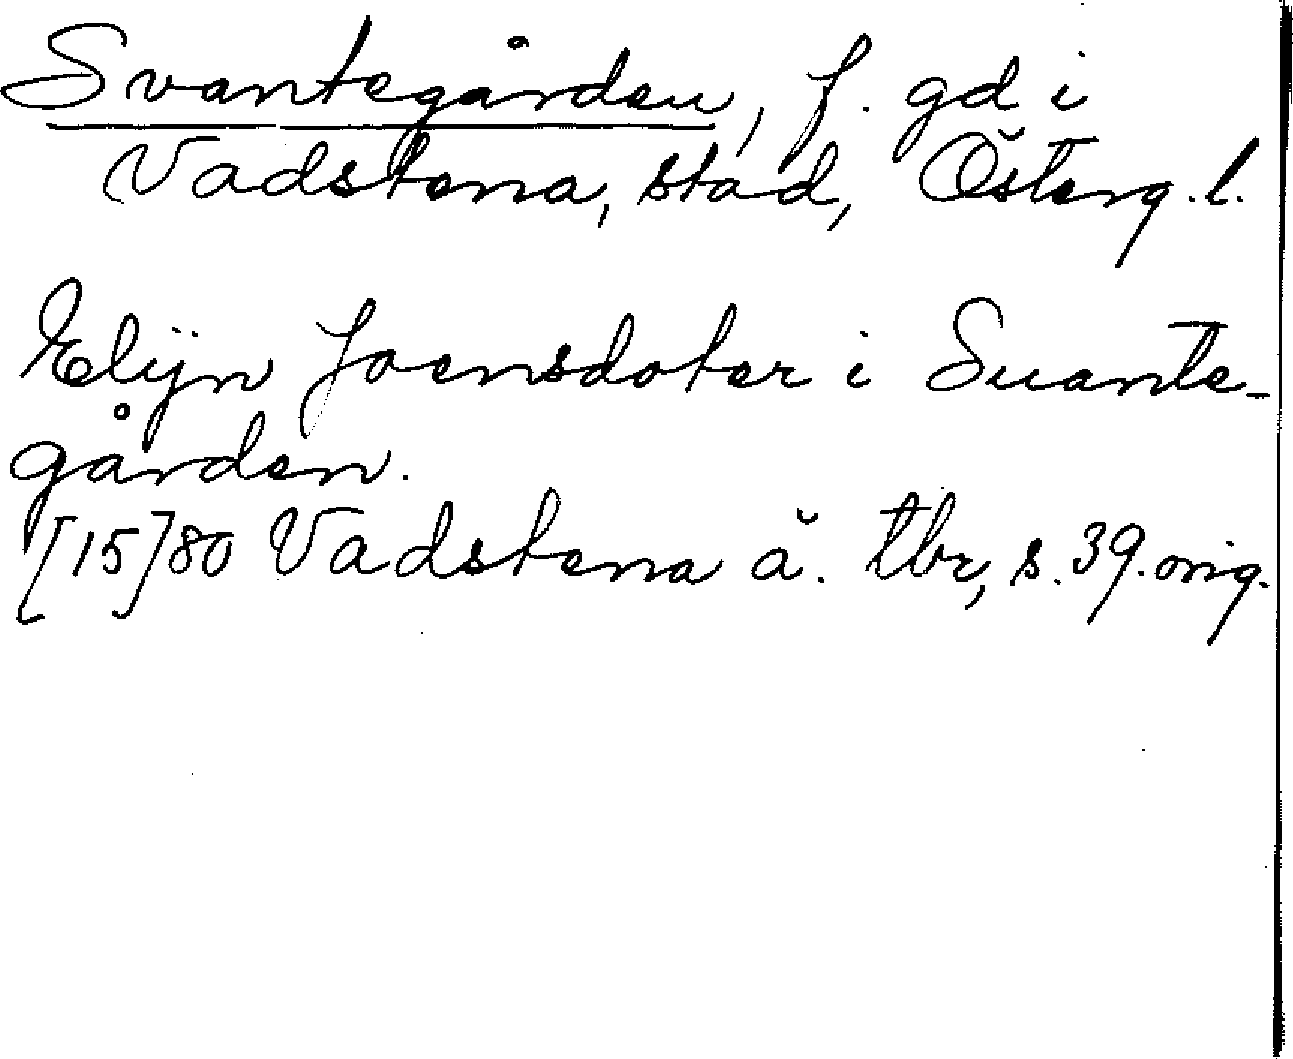 Svantegården, f. gd i
Vadstena, stad, Österg.l.
Elijn Joensdoter i Suante-
gården.
[15]80 Vadstena ä. tbr, s. 39. orig.